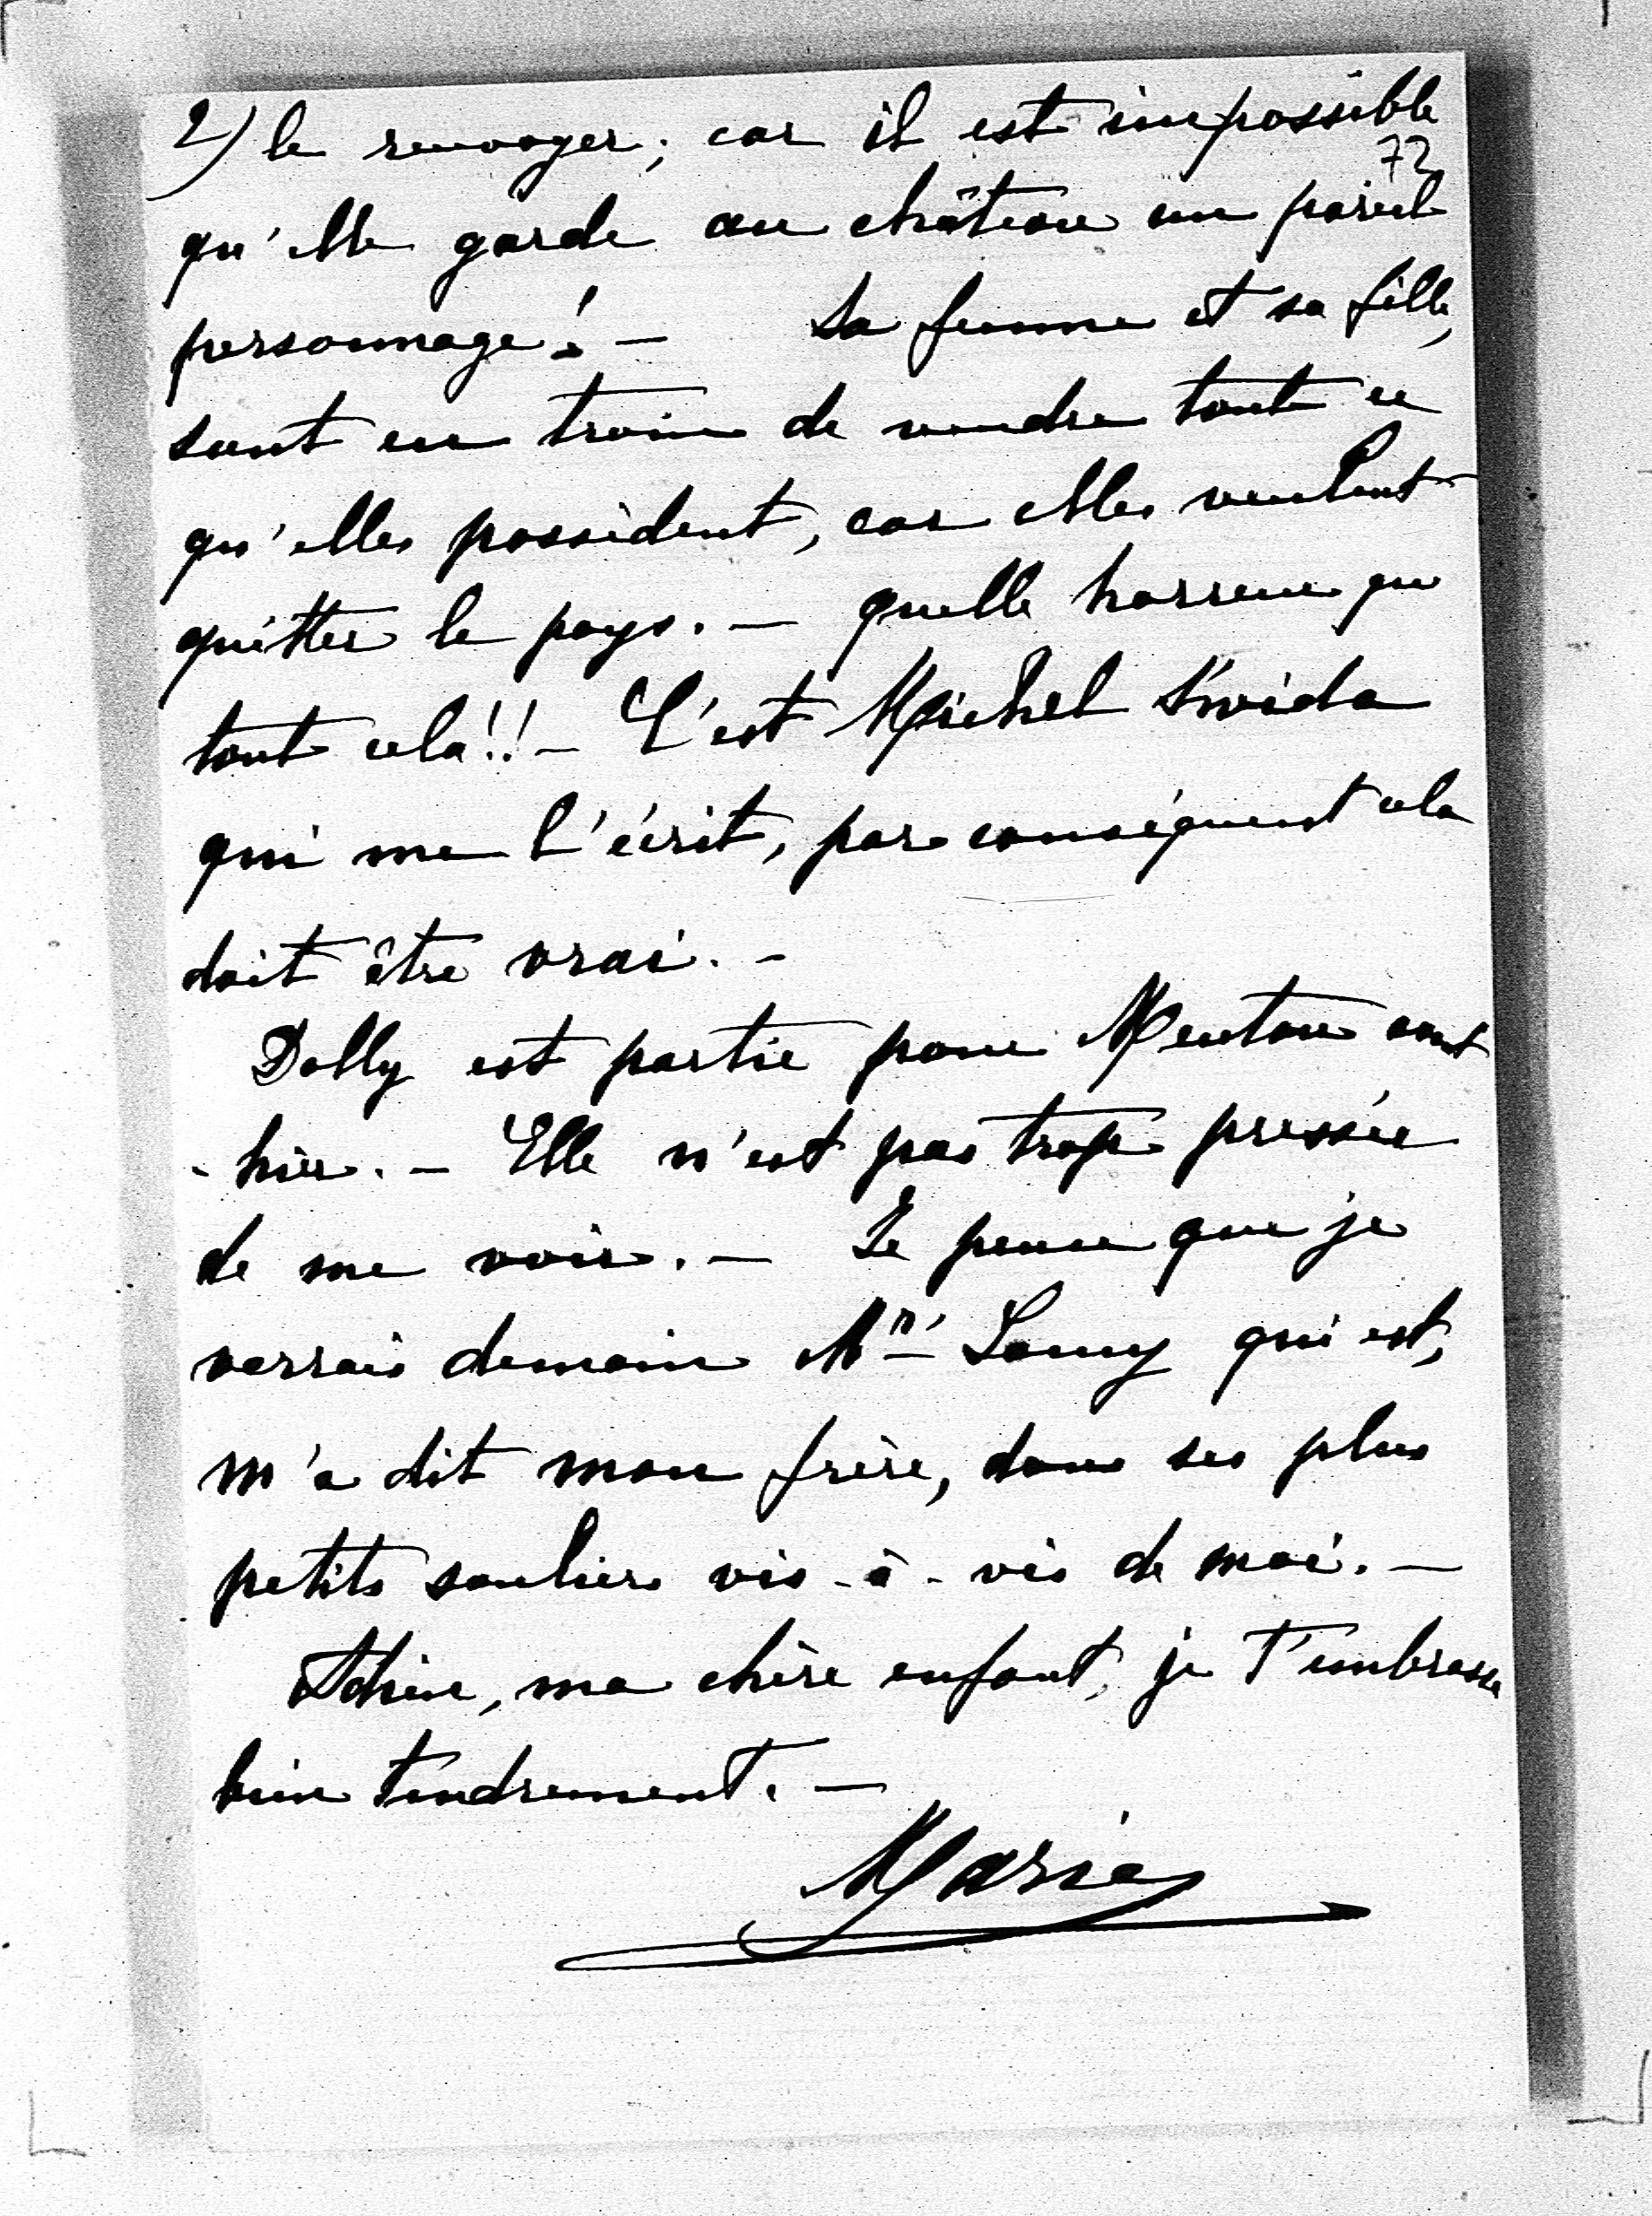 2) le renvoyer; car il est impossible
72
qu'elle garde au château un pareil
personnage! – Sa femme et sa fille,
sont en train de vendre tout ce
qu'elles possèdent, car elles veulent
quitter le pays. – quelle horreur que
tout cela!! – C'est Michel Swida
qui me l'écrit, par conséquent cela
doit être vrai. –
Dolly est partie pour Menton avant
-hier. – Elle n'est pas trop pressée
de me voir. – Je pense que je
verrais demain Mr. Lamy qui est,
m'a dit mon frère, dans ses plus
petits souliers vis-à-vis de moi. –
Adieu, ma chère enfant, je t'embrasse
bien tendrement. –
Marie